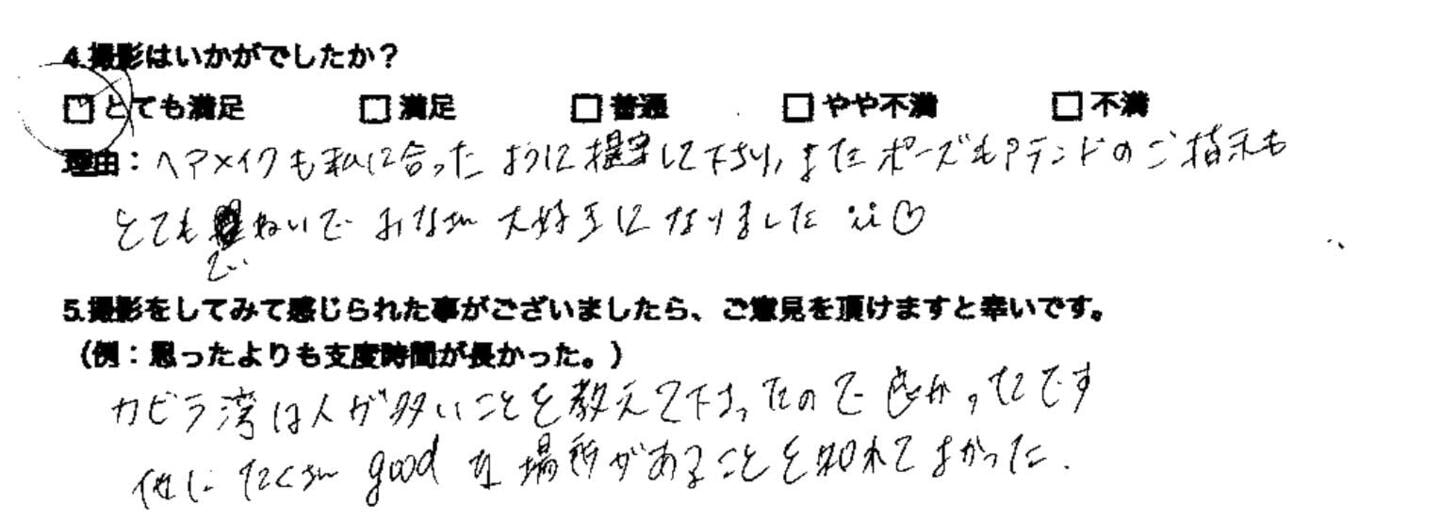 4.撮影はいかがでしたか?
□とても満足 □満足 □普通 □やや不満 □不満
理由:ヘアメイクも私に合ったように提案して下さり、またポーズもアテンドのご指示も
とてもていねいで みなさん大好きになりました ♡
5.撮影をしてみて感じられた事がございましたら、ご意見を頂けますと幸いです。
(例:思ったよりも支度時間が長かった。)
カビラ湾は人が多いことを教えて下さったので良かったです
他にたくさんgoodな場所があることを知れてよかった.